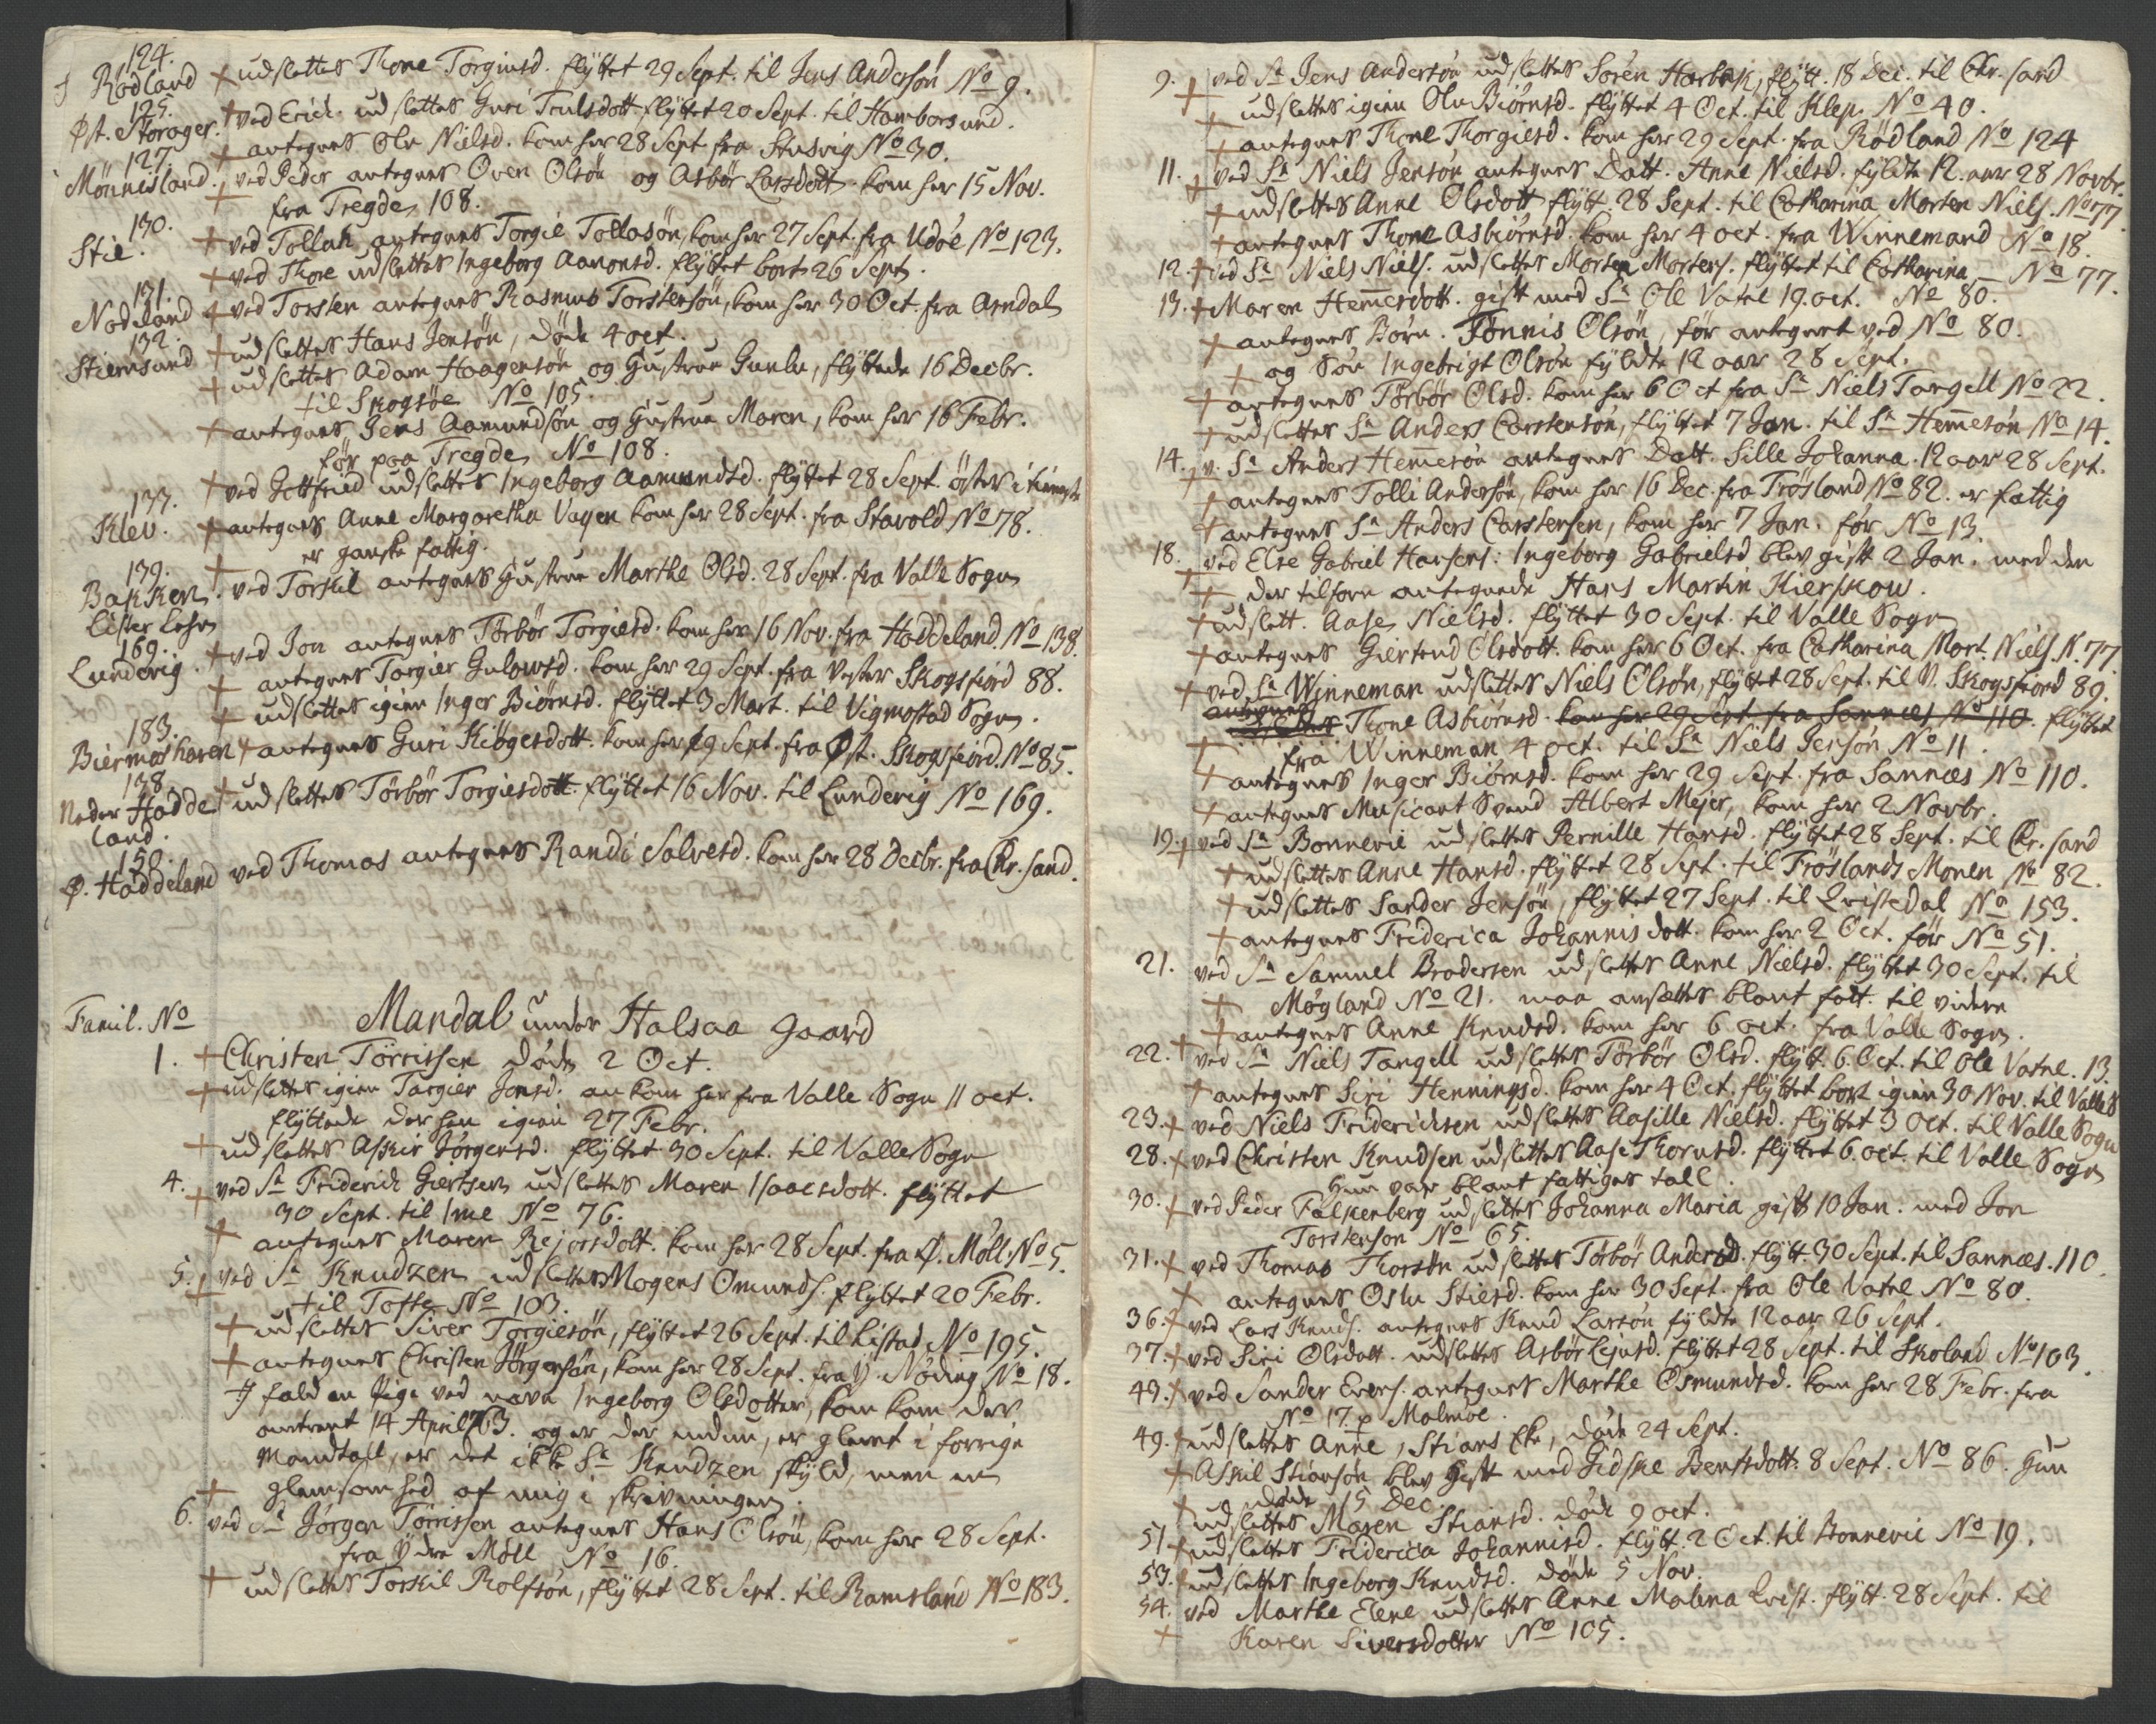 124.
Rödland + udslettes Thone Torgiusd. flÿttet 29 Sept. til Jens Andersön No 9.
125.
Øst. Storager. + ved Erich. udslettes Guri Trulsdott. flÿttet 20 Sept. til Hamborsund.
+ antegnes Olu Nielsd. kom her 28 Sept fra Stusvig No 30.
127.
Mönnisland. + ved Peder antegnes Oven Olsön og Asbör Larsdott. kom her 15 Nov.
+ fra Tregde, 108.
130.
Stie. + ved Tollak antegnes Torgie Tollasön, kom her 27 Sept. fra Udöe No 123.
+ ved Thore udslettes Ingeborg Aanonsd. flÿttet bort 26 Sept.
131.
Nodeland + ved Torsten antegnes Rasmus Torstensön, kom her 30 Oct. fra Arndal
132.
+ udslettes Hans Jensön, döde 4 oct.
Stiernsand + udslettes Adam Haagensön og Hustrue Gunlu, flÿttede 16 Decbr.
til Skogsöe No 105.
+ antegnes Jens Aamundsön og Hustrue Maren, kom her 16 Febr.
för paa Tregde, No 108.
133. + ved Gottfried udslettes Ingeborg Aamundsd. flÿttet 28 Sept. öster i
Klev. + antegnes Anne Margaretha Vagen kom her 28 Sept. fra Stavold No 78.
+ er ganske fattig.
139.
Bakken. ved Torkil antegnes Hustrue Marthe Olsd. 28 Sept. fra Valle Sogn
Lister Lehn
169. + ved Jon antegnes Törbör Torgiesd. kom her 16 Nov. fra Haddeland. No 138.
Lundevig. + antegnes Torgier Gulowsd. kom her 29 Sept. fra Vester Skogsfiord 88.
+ udslettes igien Inger Biörnsd. flÿttet 3 Mart. til Vigmostad Sogn.
183.
Biermoshaven + antegnes Guri Kiögesdott. kom her 29 Sept. fra Øst. Skogsfiord. No 85.
138
Neder Hadde + udslettes Törbör Torgiesdott. flÿttet 16 Nov. til Lundevig No 169.
land.
150.
Ø. Haddeland ved Thomas antegnes Randi Salvesd. kom her 28 Decbr. fra Chr.sand.
Famil. No Mandal under Halsaa Gaard
1. + Christen Törrissen döde 2 Oct.
+ udslettes igien Targier Jonsd. ankom her fra Valle Sogn 11 oct.
flÿttede derhen igien 27 Febr.
+ udslettes Askier Jörgensd. flÿttet 30 Sept. til Valle Sogn
4. + ved Sr Friderich Giertsen udslettes Maren Isaacsdott. flÿttet
30 Sept. til Ime No 76.
+ antegnes Maren Rejersdott. kom her 28 Sept. fra Ø. Möll. No 5.
5. + ved Sr Knudzen udslettes Mogens Omunds. flÿttet 20 Febr.
til Tofte No 103.
+ udslettes Siver Torgiesön, flÿttet 26 Sept. til Listad No 195.
+ antegnes Christen Jörgensön, kom her 28 Sept. fra Y. Nöding No 18.
J fald en Pige ved navn Ingeborg Olsdotter, som kom der
omtrent 14 April 763. og er der endnu, er glemt i forrige
Mandtall, er det ikke Sr Knudzen skÿld, men en
+ glemsomhed af mig i skrivningen.
6. ved Sr Jörgen Törrissen antegnes Hans Olsön, kom her 28 Sept.
fra Ydre Möll No 16.
+ udslettes Torkil Rolfsön, flÿttet 28 Sept. til Ramsland No 183.
9. + ved Sr Jens Andersön udslettes Sören Harbak, flÿtt. 18 Dec. til Chr.sand
+ udslettes igien Olu Biörnsd. flÿttet 4 Oct. til Klep. No 40.
+ antegnes Thone Thorgiesd. kom her 29 Sept. fra Rödland No 124
11. + ved Sr Niels Jensön antegnes Datt. Anne Nielsd. fÿldte 12 aar 28 Novbr.
+ udslettes Anne Olsdott flÿtt. 28 Sept. til Catharina Morten Niels. No 77.
+ antegnes Thone Asbiörnsd. kom her 4 oct. fra Winnemand No 18.
12. + ved Sr Niels Niels. udslettes Morten Mortens. flÿttet til Catharina – No 77.
13. + Maren Hemmesdott. gift med Sr Ole Vatne 19. oct. No 80.
+ antegnes Börn. Tönnis Olsön, för antegnet ved No 80.
+ og Sön Ingebrigt Olsön fÿldte 12 aar 28 Sept.
+ antegnes Törbör Olsd. kom her 6 Oct fra Sr Niels Tangell No 22.
+ udslettes Sr Anders Carstensön, flÿttet 7 Jan. til Sr Hemmesön No 14.
14. + v. Sr Anders Hemmesön antegnes Datt. Sille Johanna. 12 aar 28 Sept.
+ antegnes Tolli Andersön, kom her 16 Dec. fra Trösland No 82. er fattig
+ antegnes Sr Anders Carstensen, kom her 7 Jan. för No 13.
18. + ved Else Gabriel Hansens: Ingeborg Gabrielsd blev gift 2 Jan. med den
+ der tilforn antegnede Hans Martin Kierskow.
+ udslett. Aase Nielsd. flÿttet 30 Sept. til Valle Sogn
+ antegnes Giertrud Olsdott. kom her 6 Oct. fra Catharina Mort. Niels. N. 77.
+ ved Sr Winneman udslettes Niels Olsön, flÿttet 28 Sept. til V. Skogsfiord 89.
antegnes Thone Asbiörnsd. kom her 29 Sept. fra Sannæs No 110. flÿttet
+ fra Winneman 4 oct. til Sr Niels Jensön No 11.
+ antegnes Inger Biörnsd. kom her 29 Sept. fra Sannæs No 110.
+ antegnes Musicant Svend Albert Mejer, kom her 2 Novbr.
19. + ved Sr Bonnevie udslettes Pernille Hansd. flÿttet 28 Sept. til Chr.sand
+ udslettes Anne Hansd. flÿttet 28 Sept. til Tröslands Monen No 82.
+ udslettes Sander Jensön, flÿttet 27 Sept. til Qvisledal No 153.
+ antegnes Friderica Johannisdott. kom her 2 Oct. för No 51.
21. ved Sr Samuel Brodersen udslettes Anne Nielsd. flÿttet 30 Sept. til
+ Mögland No 21. maa ansættes blant fatt. til videre
+ antegnes Anne Knudsd. kom her 6 oct. fra Valle Sogn.
22. + ved Sr Niels Tangell udslettes Törbör Olsd. flÿtt. 6 Oct. til Ole Vatne. 13.
+ antegnes Siri Henningsd. kom her 4 Oct. flÿttet bort igien 30 Nov. til Valle S
23. + ved Niels Friderichsen udslettes Aasille Nielsd. flÿttet 3 Oct. til Valle Sogn
28. + ved Christen Knudsen udslettes Aase Thorusd. flÿttet 6. oct. til Valle Sogn
hun var blant fattiges tall.
30. + ved Peder Falkenberg udslettes Johanna Maria gift 10 Jan. med Jon
Torstenson No 65.
31. + ved Thomas Thorsön udslettes Törbör Andersd. flÿtt. 30 Sept. til Sannæs. 110.
+ antegnes Oslu Stiesd. kom her 30 Sept. fra Ole Vatne No 80.
36. + ved Lars Knuds. antegnes Knud Larsön fÿldte 12 aar 26 Sept.
37. + ved Siri Olsdatt. udslettes Asbör Lejusd. flÿttet 28 Sept. til Skoland No 103.
43. + ved Sander Evens. antegnes Marthe Osmundsd. kom her 28 Febr. fra
No 17 p Malmöe.
49. + udslettes Anne, Stians Eke, döde 24 Sept.
+ Askil Stiansön blev Gift med Gidske Berntsdott. 8 Sept. No 86. Hun
döde 15 Dec.
+ udslettes Maren Stiansd. döde 9 oct.
51. + udslettes Friderica Johannisd. flÿtt. 2 Oct. til Bonnevie No 19.
53. + udslettes Ingeborg Knudsd. döde 5 Nov.
54. ved Marthe Elene udslettes Anne Malena Qvist. flÿtt. 28 Sept. til
+ Karen Siversdotter No 105.